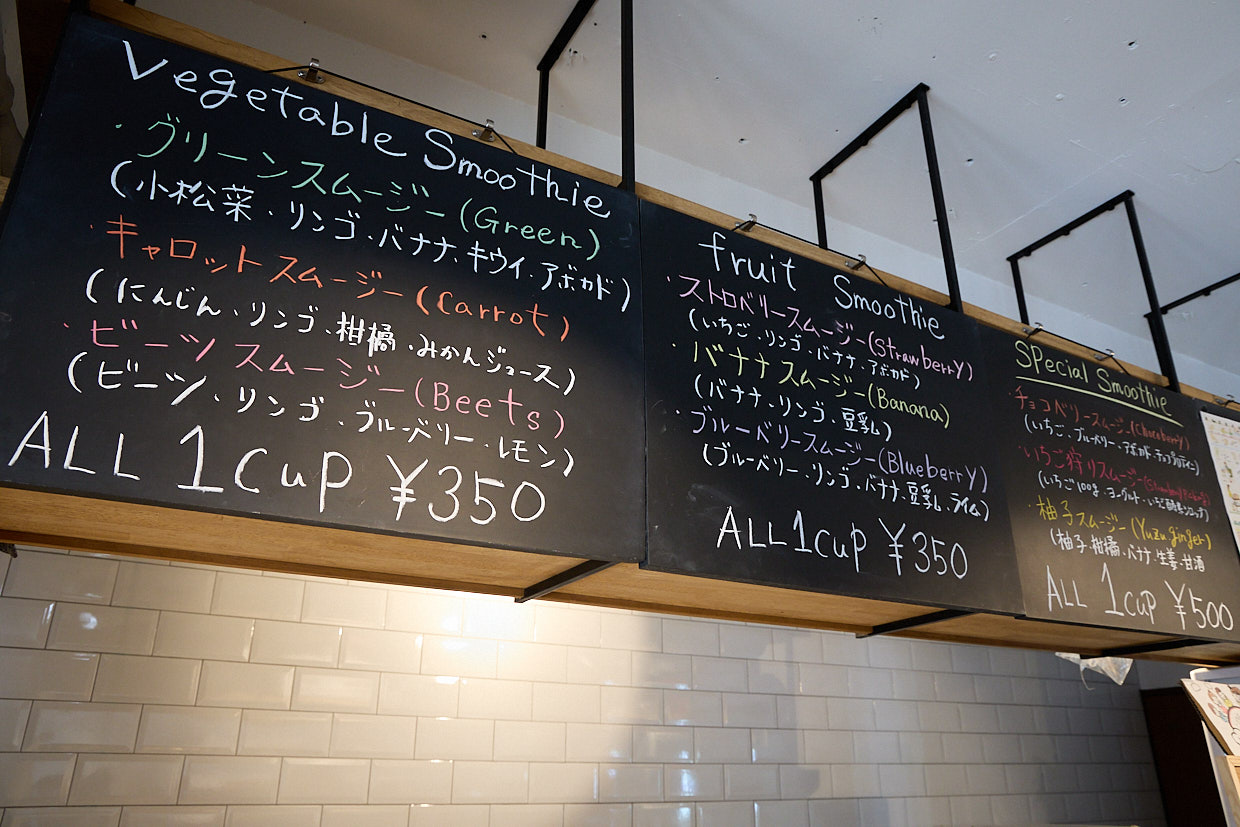 Vegetable Smoothie
・グリーンスムージー(Green)
(小松菜・リンゴ・バナナ・キウイ・アボカド)
・キャロットスムージー(Carrot)
(にんじん・リンゴ・柑橘・みかんジュース)
・ビーツスムージー(Beets)
(ビーツ・リンゴ・ブルーベリー・レモン)
ALL 1cup ¥350
fruit Smoothie
・ストロベリースムージー(Strawberry)
(いちご・リンゴ・バナナ・アボカド)
・バナナスムージー(Banana)
(バナナ・リンゴ・豆乳)
・ブルーベリースムージー(Blueberry)
(ブルーベリー・リンゴ・バナナ・豆乳・ライム)
ALL 1cup ¥350
Special Smoothie
・チョコベリースムージー(Chocoberry)
(いちご・ブルーベリー・アボカド・チョコプロテイン)
・いちご狩りスムージー(Strawberry
(いちご100g・ヨーグルト・いちご酵素シロップ)
・柚子スムージー(Yuzu ginger)
(柚子・柑橘・バナナ・生姜・甘酒
ALL 1cup ¥500